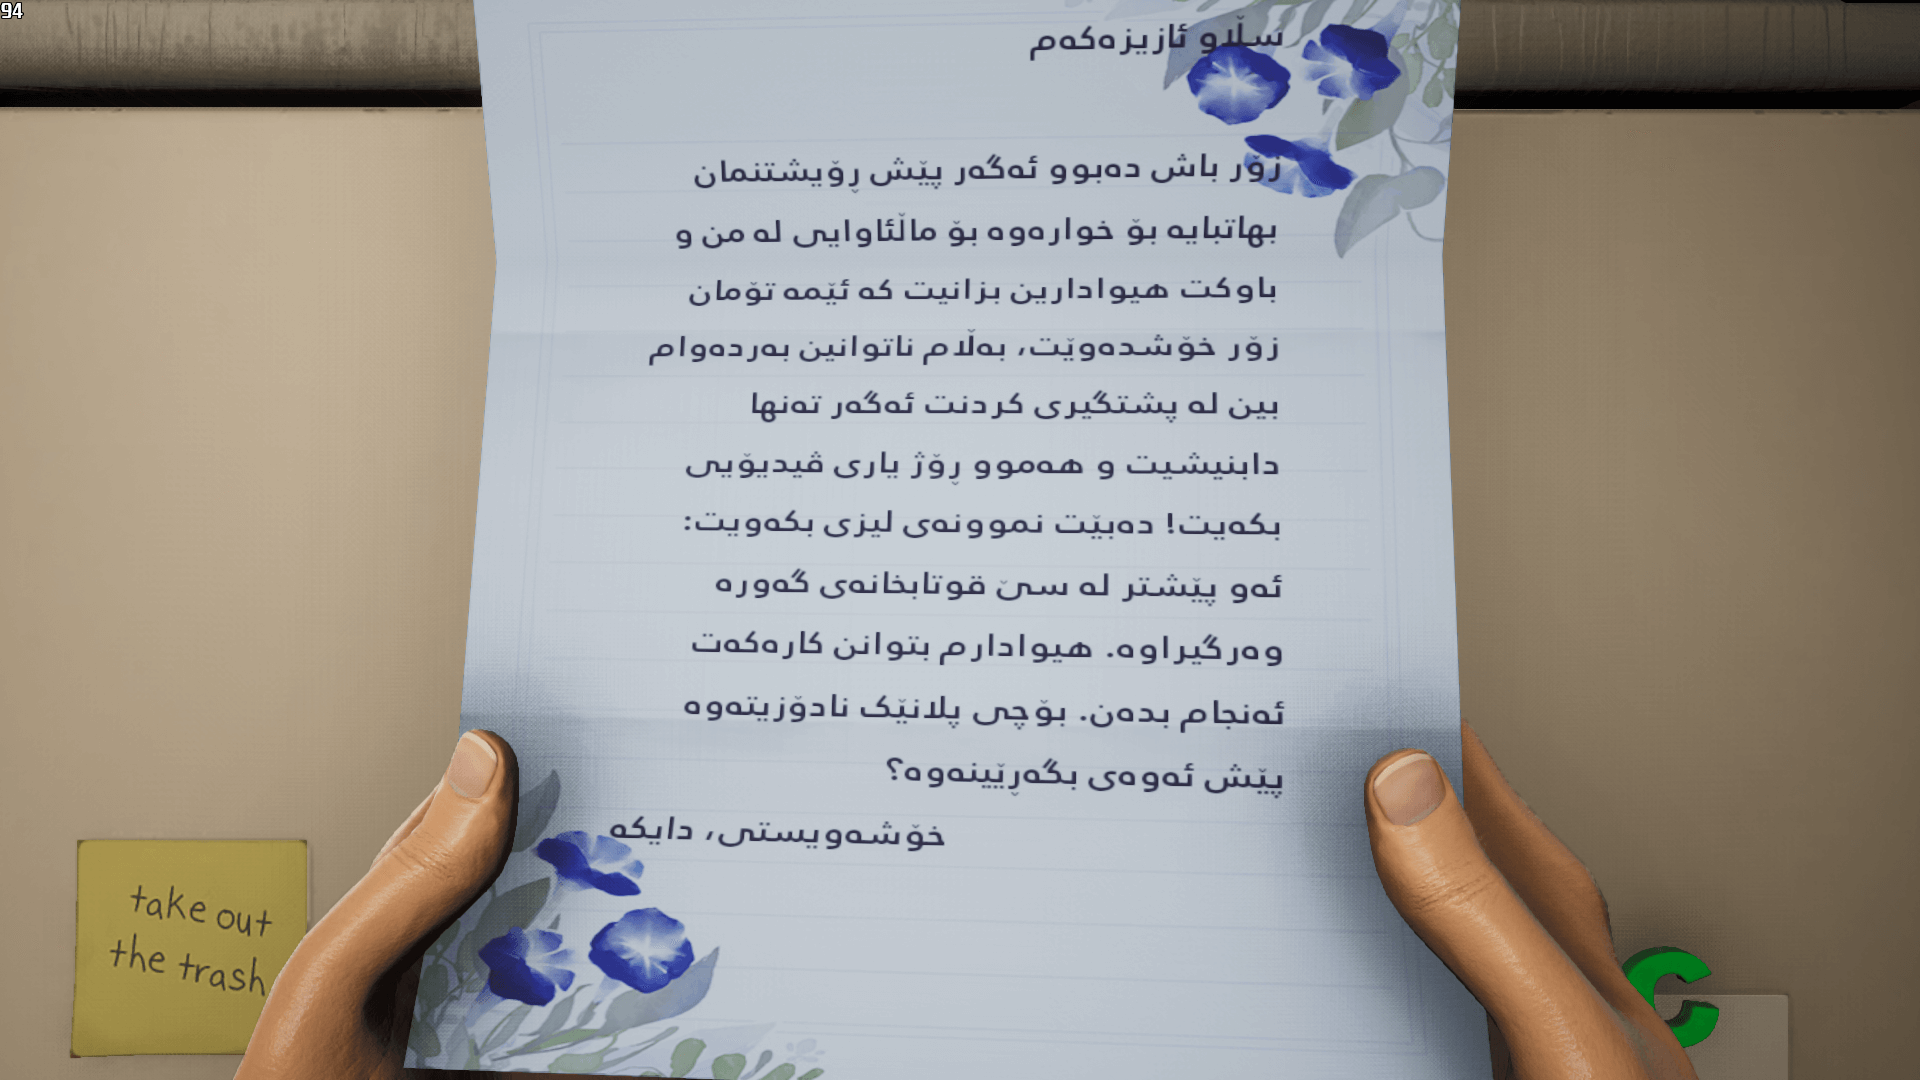 94
سڵاو ئازیزەکەم
زۆر باش دەبوو ئەگەر پێش ڕۆیشتنمان
بهاتبایە بۆ خوارەوە بۆ ماڵئاوایی لە من و
باوکت هیوادارین بزانیت کە ئێمە تۆمان
زۆر خۆشدەوێت، بەڵام ناتوانین بەردەوام
بین لە پشتگیری کردنت ئەگەر تەنها
دابنیشیت و هەموو ڕۆژ یاری ڤیدیۆیی
بکەیت! دەبێت نموونەی لیزی بکەویت:
ئەو پێشتر لە سێ قوتابخانەی گەورە
وەرگیراوە. هیوادارم بتوانن کارەکەت
ئەنجام بدەن. بۆچی پلانێک نادۆزیتەوە
پێش ئەوەی بگەڕێینەوە؟
خۆشەویستی، دایکە
take out
the trash